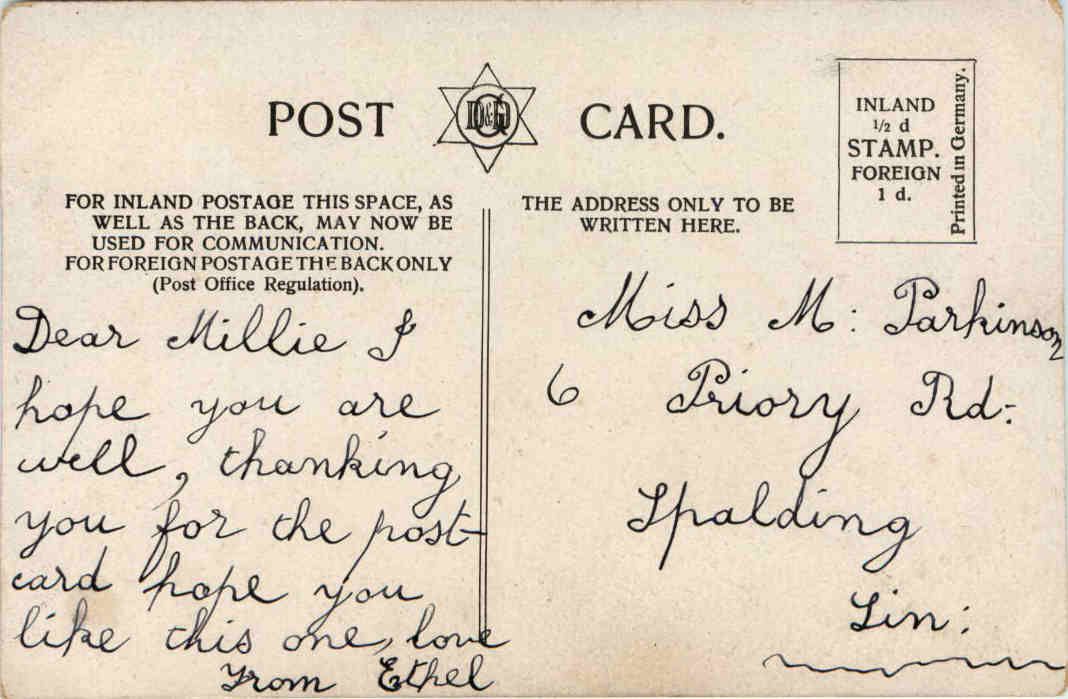 POST D&G CARD.
INLAND
½ d
STAMP.
FOREIGN
1 d.
Printed in Germany.
FOR INLAND POSTAGE THIS SPACE, AS
WELL AS THE BACK, MAY NOW BE
USED FOR COMMUNICATION.
FOR FOREIGN POSTAGE THE BACK ONLY
(Post Office Regulation).
THE ADDRESS ONLY TO BE
WRITTEN HERE.
Dear Millie I
hope you are
well, thanking
you for the post-
card hope you
like this one, love
From Ethel
Miss M: Parkinson
6 Priory Rd:
Spalding
Lin: